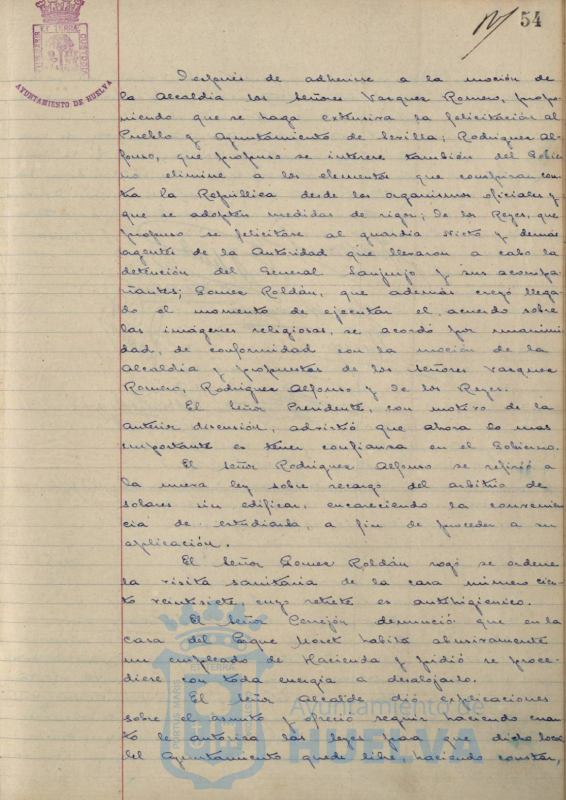 54
AYUNTAMIENTO DE HUELVA
Después de adherirse a la moción de
la Alcaldía los Señores Vazquez Romero, propo-
niendo que se haga extensiva la felicitación al
Pueblo y Ayuntamiento de Sevilla; Rodriguez Al-
fonso, que propuso se interese también del Gobier-
no elimine a los elementos que conspiran con-
tra la República desde los organismos oficiales y
que se adopten medidas de rigor; de los Reyes, que
propuso se felicitase al guardia Nieto y demás
agentes de la Autoridad que llevaron a cabo la
detención del General Sanjurjo y sus acompa-
ñantes; Gomez Roldán, que además creyó llega-
do el momento de ejecutar el acuerdo sobre
las imágenes religiosas, se acordó por unanimi-
dad, de conformidad con la moción de la
Alcaldía y propuestas de los Señores Vazquez
Romero, Rodriguez Alfonso y de los Reyes.
El Señor Presidente, con motivo de la
anterior discusión, advirtió que ahora lo mas
importante es tener confianza en el Gobierno.
El Señor Rodriguez Alfonso se refirió a
la nueva ley sobre recargo del arbitrio de
solares sin edificar, encareciendo la convenien-
cia de estudiarla, a fin de proceder a su
aplicación.
El Señor Gomez Roldán rogó se ordene
la visita sanitaria de la casa número cien-
to veintisiete cuyo retrete es antihigiénico.
El Señor Cerrejón denunció que en la
casa del Parque Moret habita abusivamente
un empleado de Hacienda y pidió se proce-
diese con toda energía a desalojarlo.
El Señor Alcalde dió explicaciones
sobre el asunto y ofreció seguir haciendo cuan-
to le autoriza las leyes para que dicho local
del Ayuntamiento quede libre, haciendo constar,
Ayuntamiento de
HUELVA